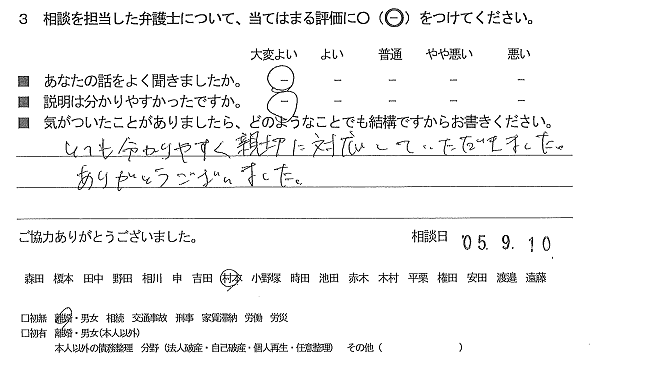 3 相談を担当した弁護士について、当てはまる評価に○（⊖）をつけてください。
大変よい よい 普通 やや悪い 悪い
■ あなたの話をよく聞きましたか。 － － － － －
■ 説明は分かりやすかったですか。 － － － － －
■ 気がついたことがありましたら、どのようなことでも結構ですからお書きください。
とても分かりやすく親切に対応していただきました。
ありがとうございました。
ご協力ありがとうございました。 相談日 '05.9.10
森田 榎本 田中 野田 相川 申 吉田 村本 小野塚 時田 池田 赤木 木村 平栗 権田 安田 渡邉 遠藤
□初無 離婚・男女 相続 交通事故 刑事 家賃滞納 労働 労災
□初有 離婚・男女(本人以外)
本人以外の債務整理 分野（法人破産・自己破産・個人再生・任意整理） その他（ ）